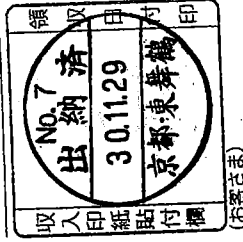 領収日付印
No.7
出納済
30.11.29
京都・東舞鶴
収入印紙貼付欄
(お客さま)